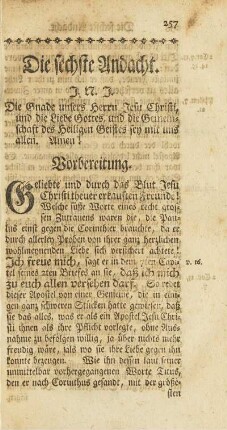 257
Die sechste Andacht.
J. N. J.
Die Gnade unsers Herrn Jesu Christi,
und die Liebe Gottes, und die Gemein-
schaft des Heiligen Geistes sey mit uns
allen. Amen!
Vorbereitung.
Geliebte und durch das Blut Jesu
Christi theuer erkauften Freunde!
Welche süsse Worte eines recht gros-
sen Zutrauens waren die, die Pau-
lus einst gegen die Corinthier brauchte, da er
durch allerley Proben von ihrer ganz herzlichen,
wohlmeynenden Liebe sich versichert achtete!
Ich freue mich, sagt er in dem 7ten Capi- v. 16.
tel seines 2ten Briefes an sie, daß ich mich
zu euch allen versehen darf. So redet
dieser Apostel von einer Gemeine, die in eini-
gen ganz schweren Stücken hatte gewiesen, daß
sie das alles, was er als ein Apostel Jesu Chri-
sti ihnen als ihre Pflicht vorlegte, ohne Aus-
nahme zu befolgen willig, ja über nichts mehr
freudig wäre, als wo sie ihre Liebe gegen ihn
konnte bezeugen. Wie ihn dessen laut seiner
unmittelbar vorhergegangenen Worte Titus,
den er nach Corinthus gesandt, mit der größe-
sten